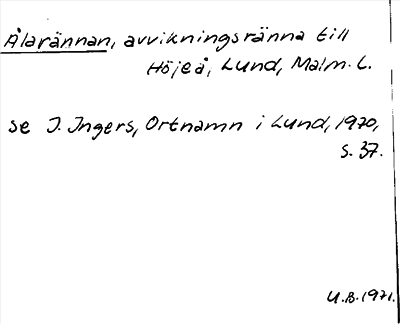 Ålarännan, avvikningsränna till
Höjeå, Lund, Malm. L.
se I. Ingers, Ortnamn i Lund, 1970,
s. 37.
U.B. 1971.